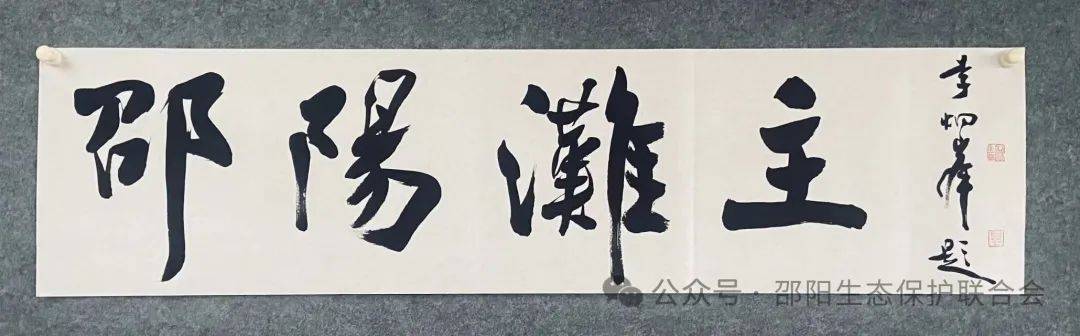 邵陽灘主
李炳峰题
公众号·邵阳生态保护联合会